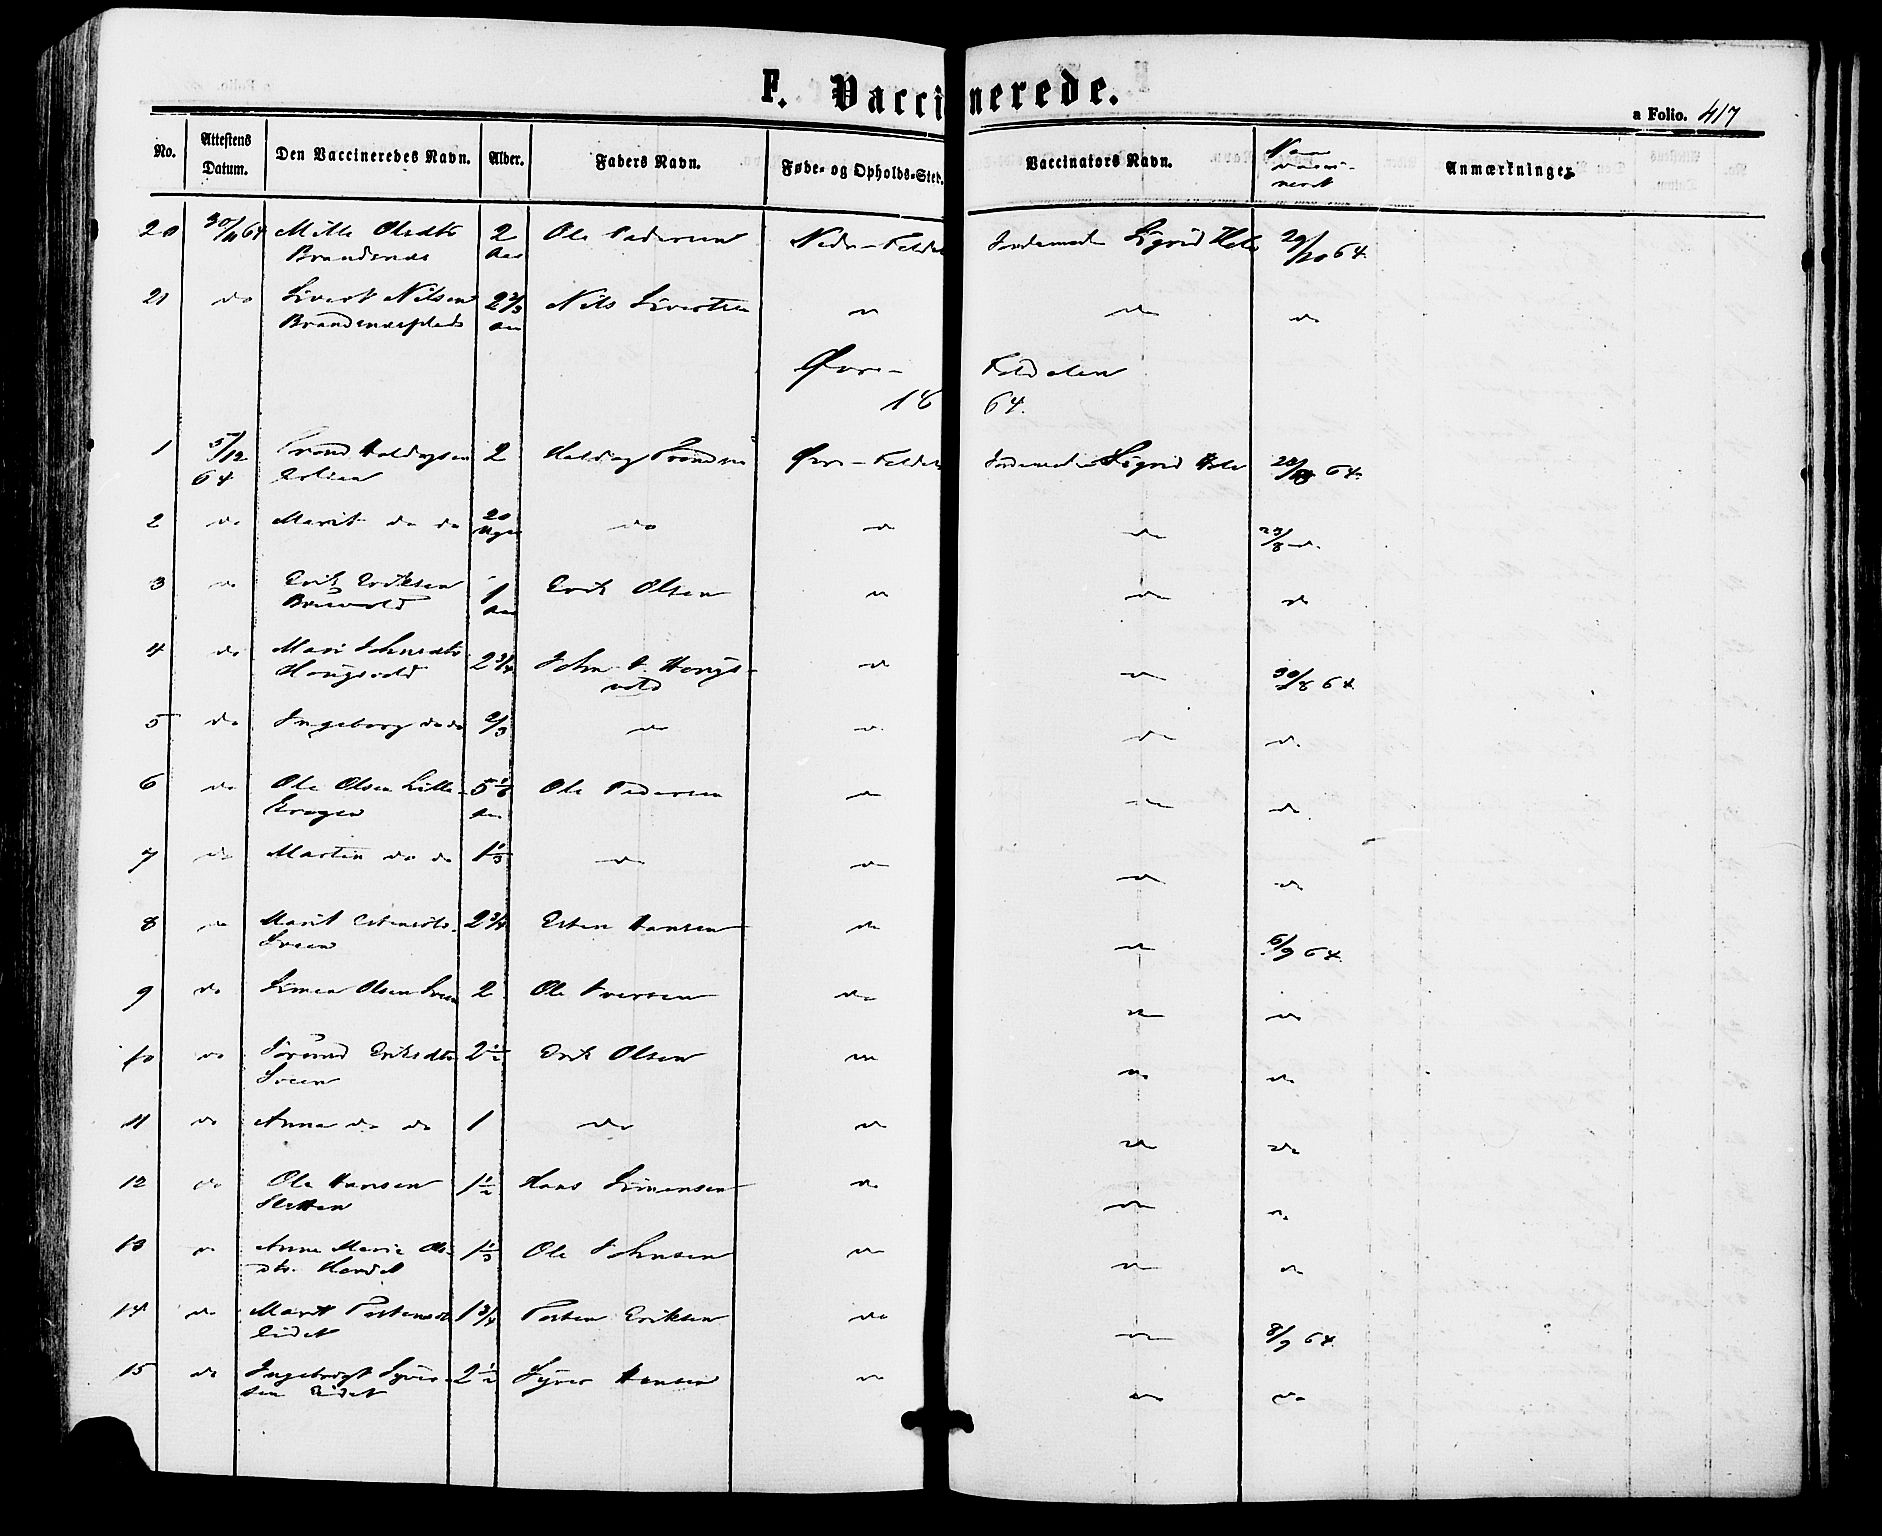 F. Vaccinerede.
a Folio. 417
No. Attestens Datum. Den Vaccineredes Navn. Alder. Faders Navn. Føde- og Opholds-Sted. Vaccinators Navn. Naar vaccineret Anmærkninger
20 30/11 64 Mille Olsdtr 2 Ole Pedersen Nedre- Sigrid 29/10 64.
Aar
21 do Sivert Nilsen 2 2/3 Nils Sivertsen do do do
Øvre-
18 64.
1 5/12 64 2 Øvre- Sigrid 64.
2 do Marit do do 20 Uger do do do 23/8 do
3 do Erik Eriksen 1 Aar Erik Olsen do do do
4 do Mari Johnsdtr 2 3/4 John do do 30/8 64
Haugsvold
5 do Ingeborg do do 2/3 do do do do
6 do Ole Olsen Lille- 5 Ole Pedersen do do do
krogen
7 do Martin do do 1 1/3 do do do do
8 do Marit Estensdtr. 2 3/4 Esten Hansen do do 6/9 64.
Sveen
9 do Simen Olsen Sveen 2 Ole Iversen do do do
10 do Eriksdtr 2 1/2 Erik Olsen do do do
Sveen
11 do Anna do do 1 do do do do
12 do Ole Hansen 1 1/2 Hans Simensen do do do
Sletten
13 do Anne Marie Ols- 1 1/3 Ole Johnsen do do do
dtr.
14 do Marit 1 3/4 Eriksen do do 8/9 64.
Eidet
15 do Ingebrigt Syver- 2 1/2 Syver Hansen do do do
sen Eidet